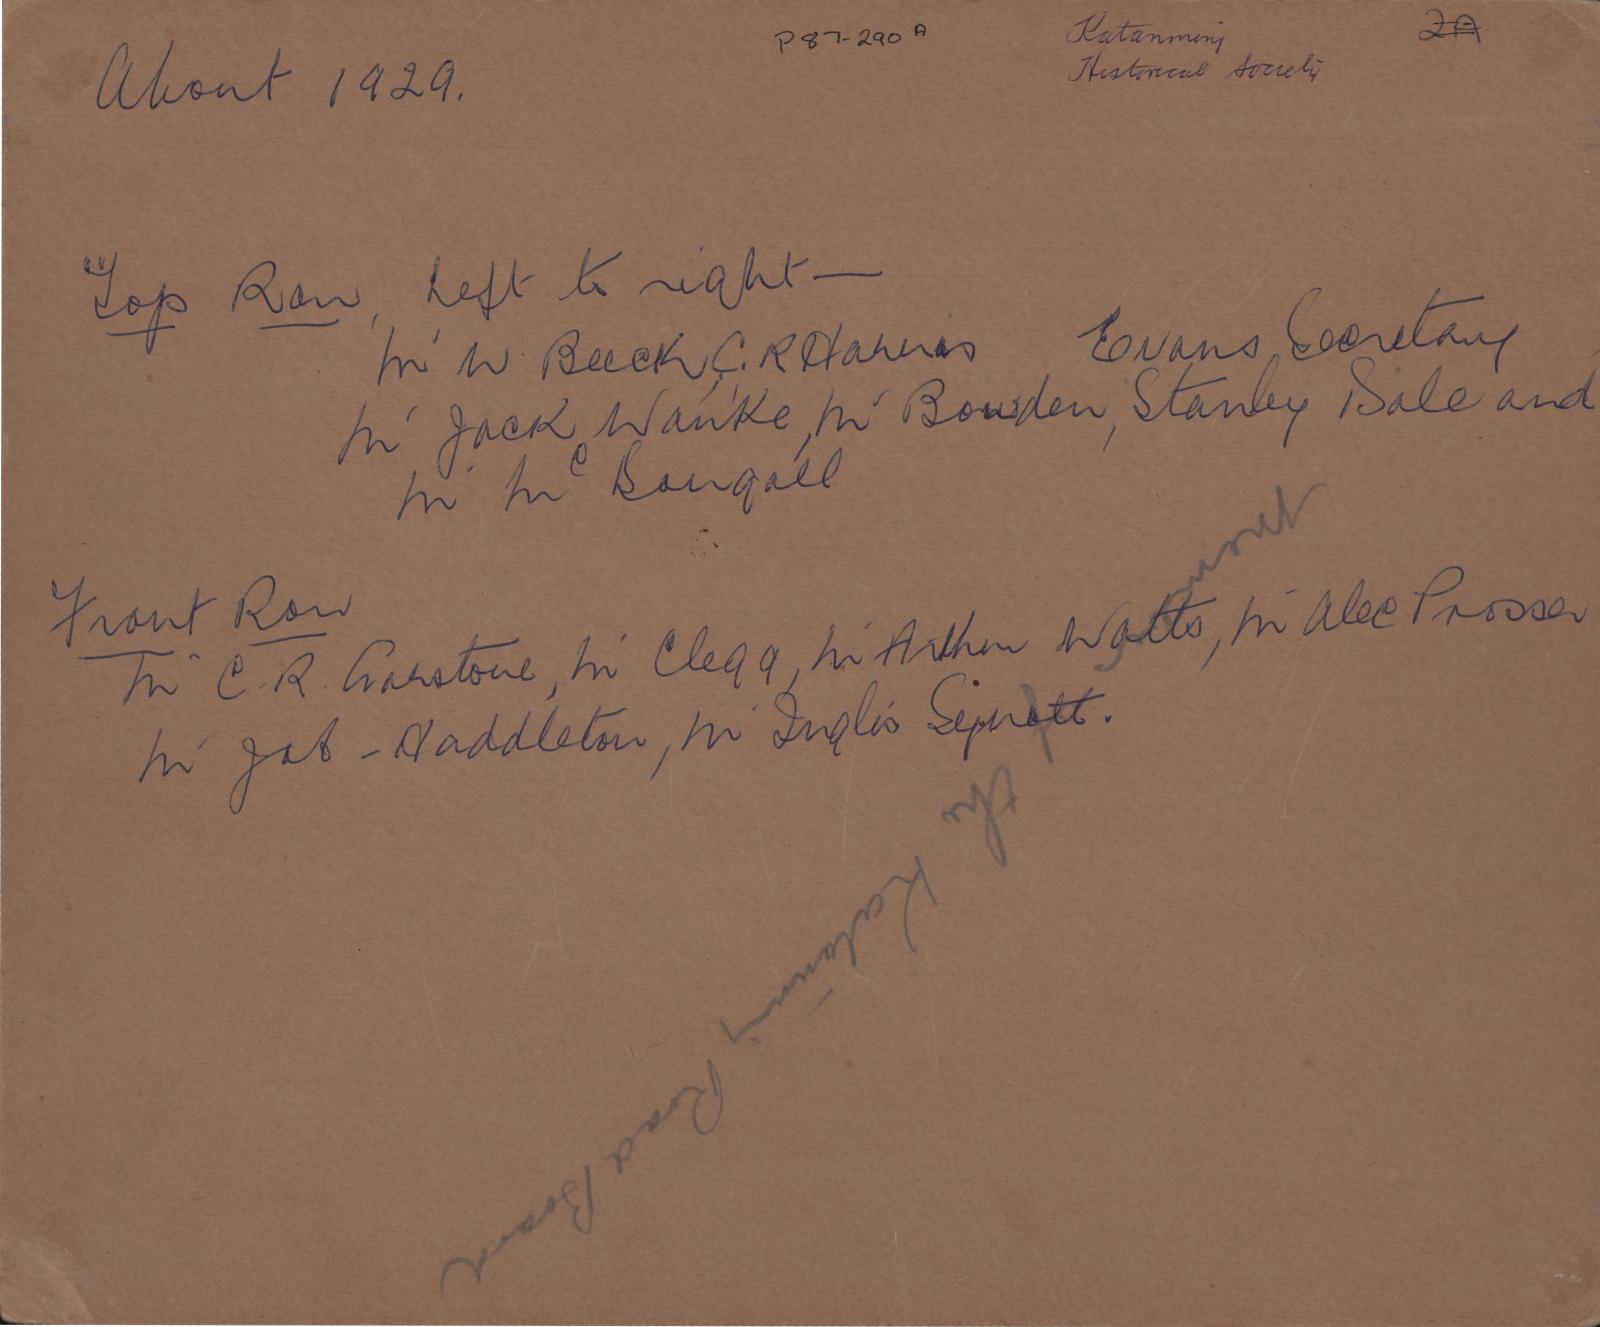 P87-290 A
Katanning
Historical Society
2A
About 1929.
Top Row, Left to right —
Mr W Beeck, C. R Harris Evans Secretary
Mr Jack Wanke, Mr Bowden, Stanley Bale and
Mr McDougall
Front Row
Mr C. R. Garstone, Mr Clegg, Mr Arthur Watts, Mr Alec Prosser
Mr Jas - Haddleton, Mr Inglis Signatt.
of the Katanning Road Board